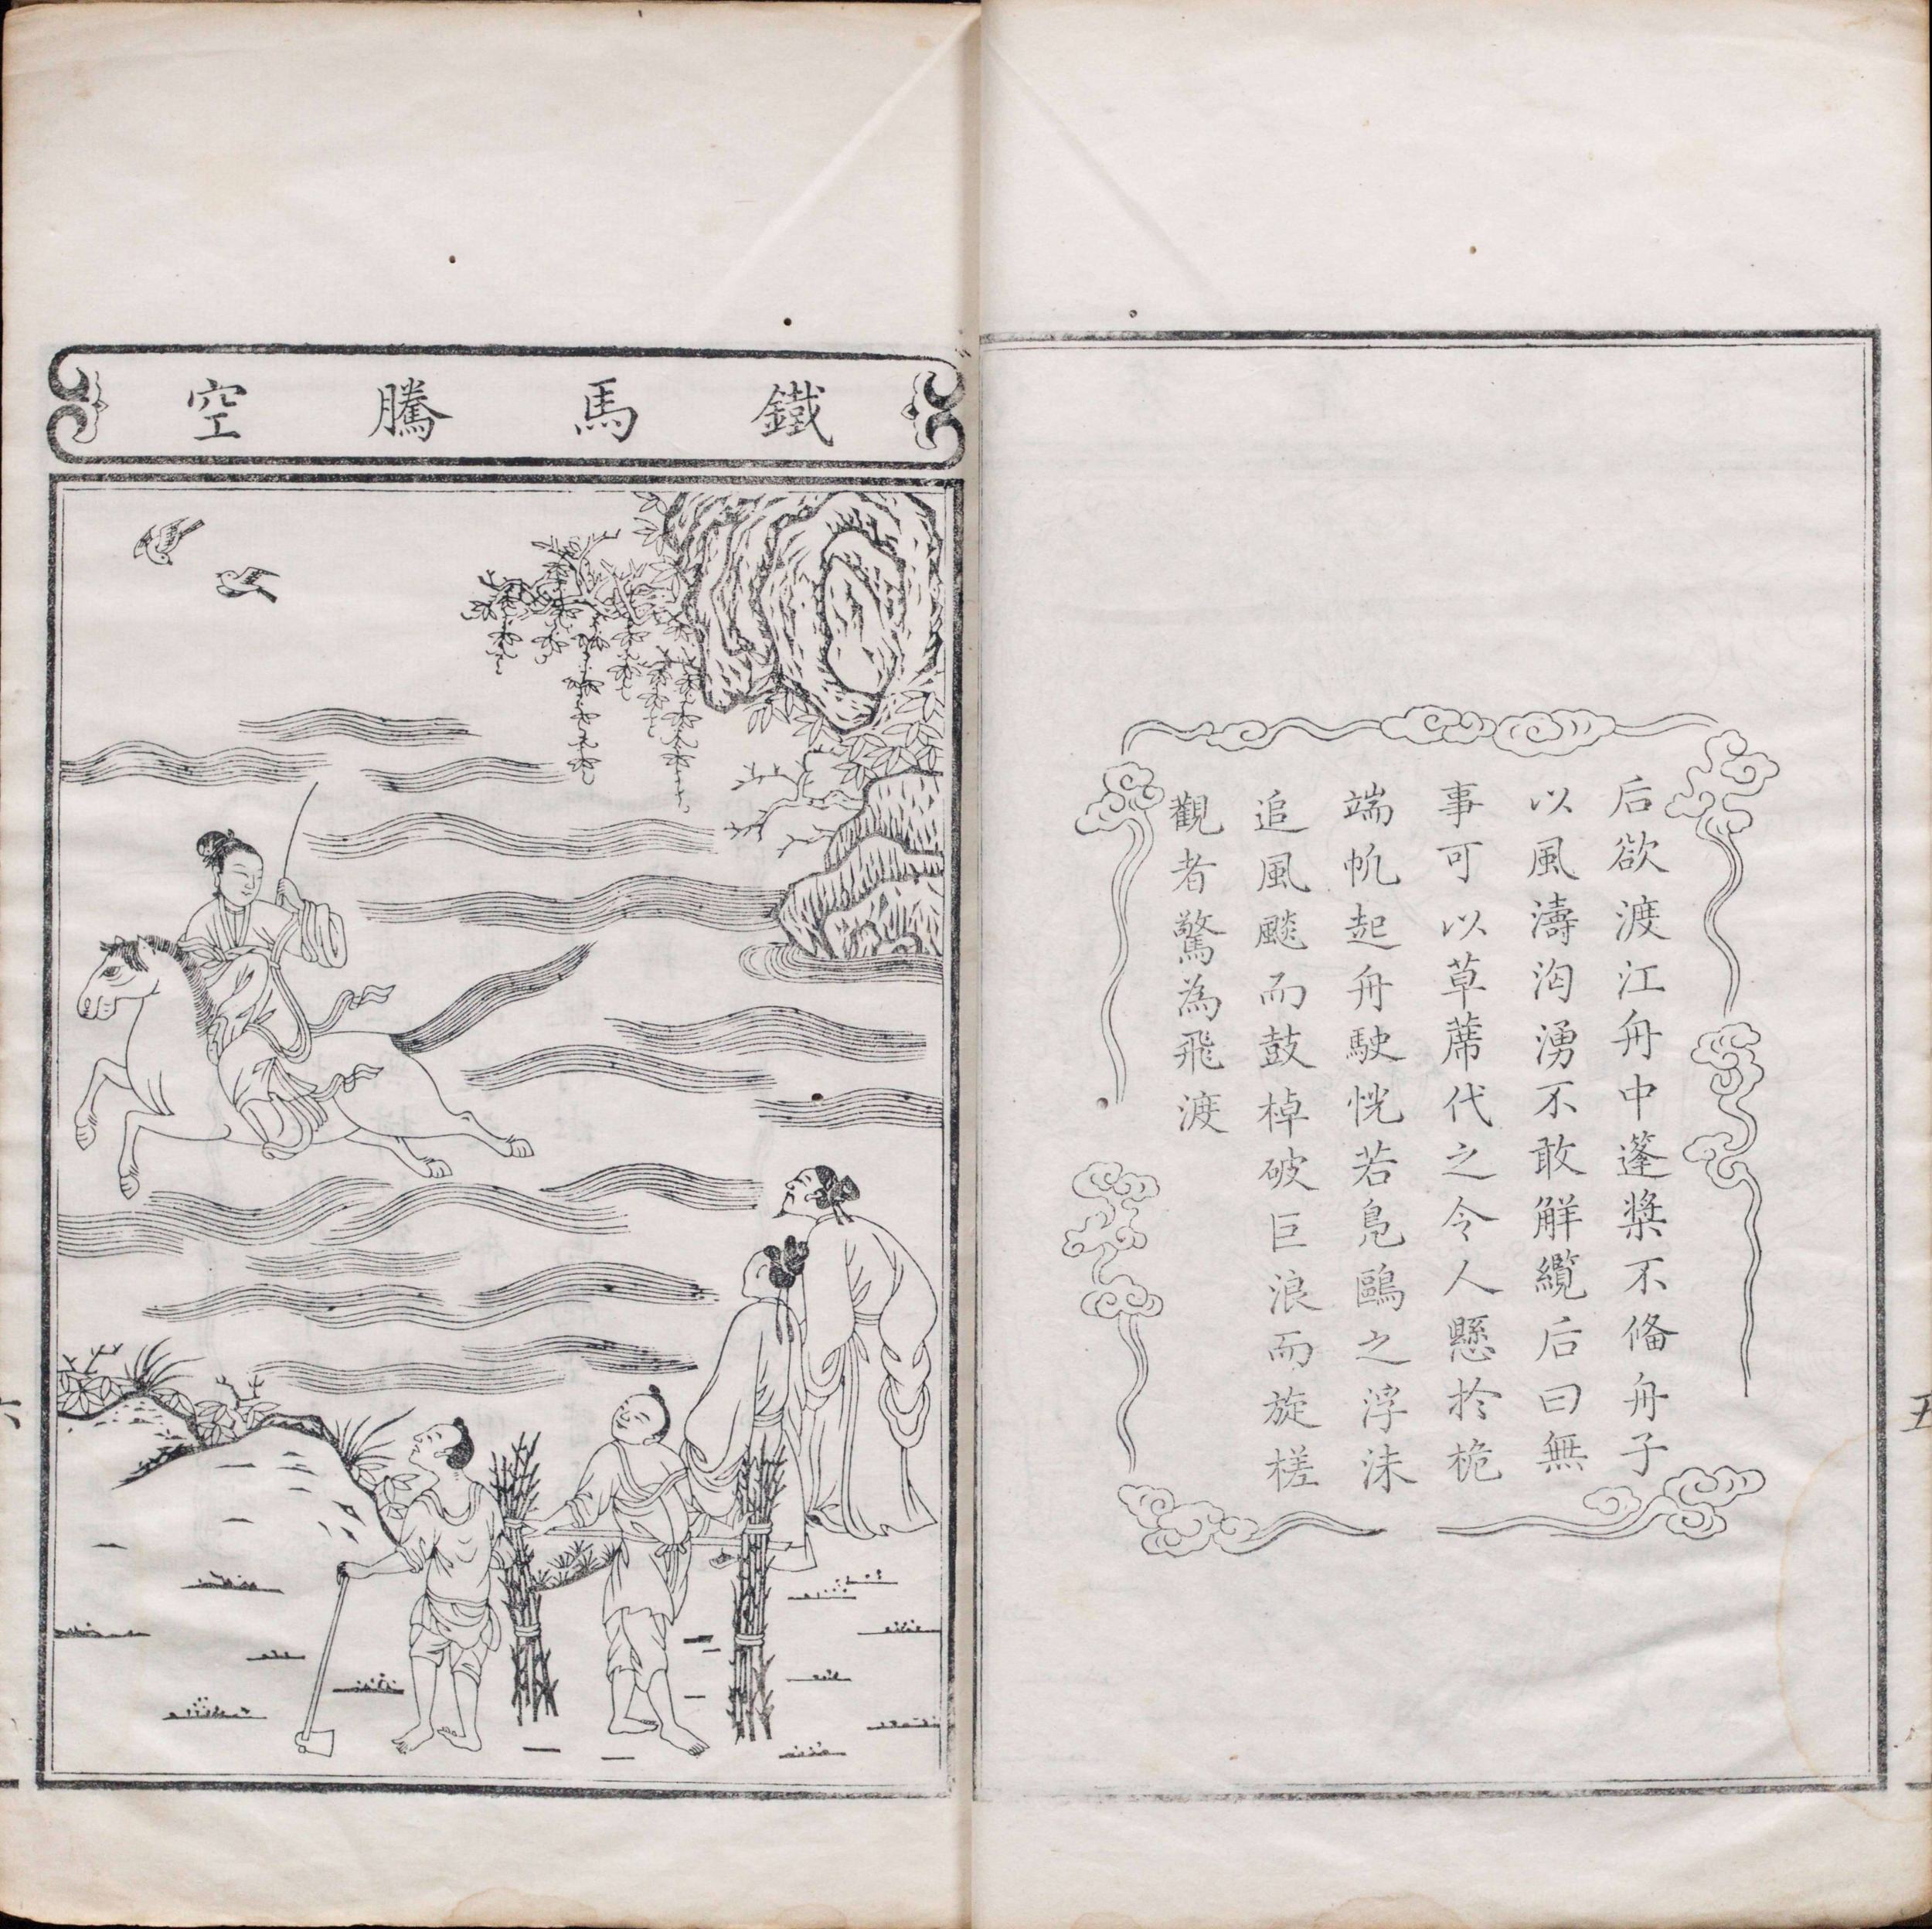 后欲渡江舟中蓬槳不俻舟子
以風濤洶湧不敢觧纜后曰無
事可以草蓆代之令人懸於桅
端帆起舟駛恍若鳧鷗之浮沬
追風颷而鼓棹破巨浪而旋槎
觀者驚為飛渡
五
鐵馬騰空